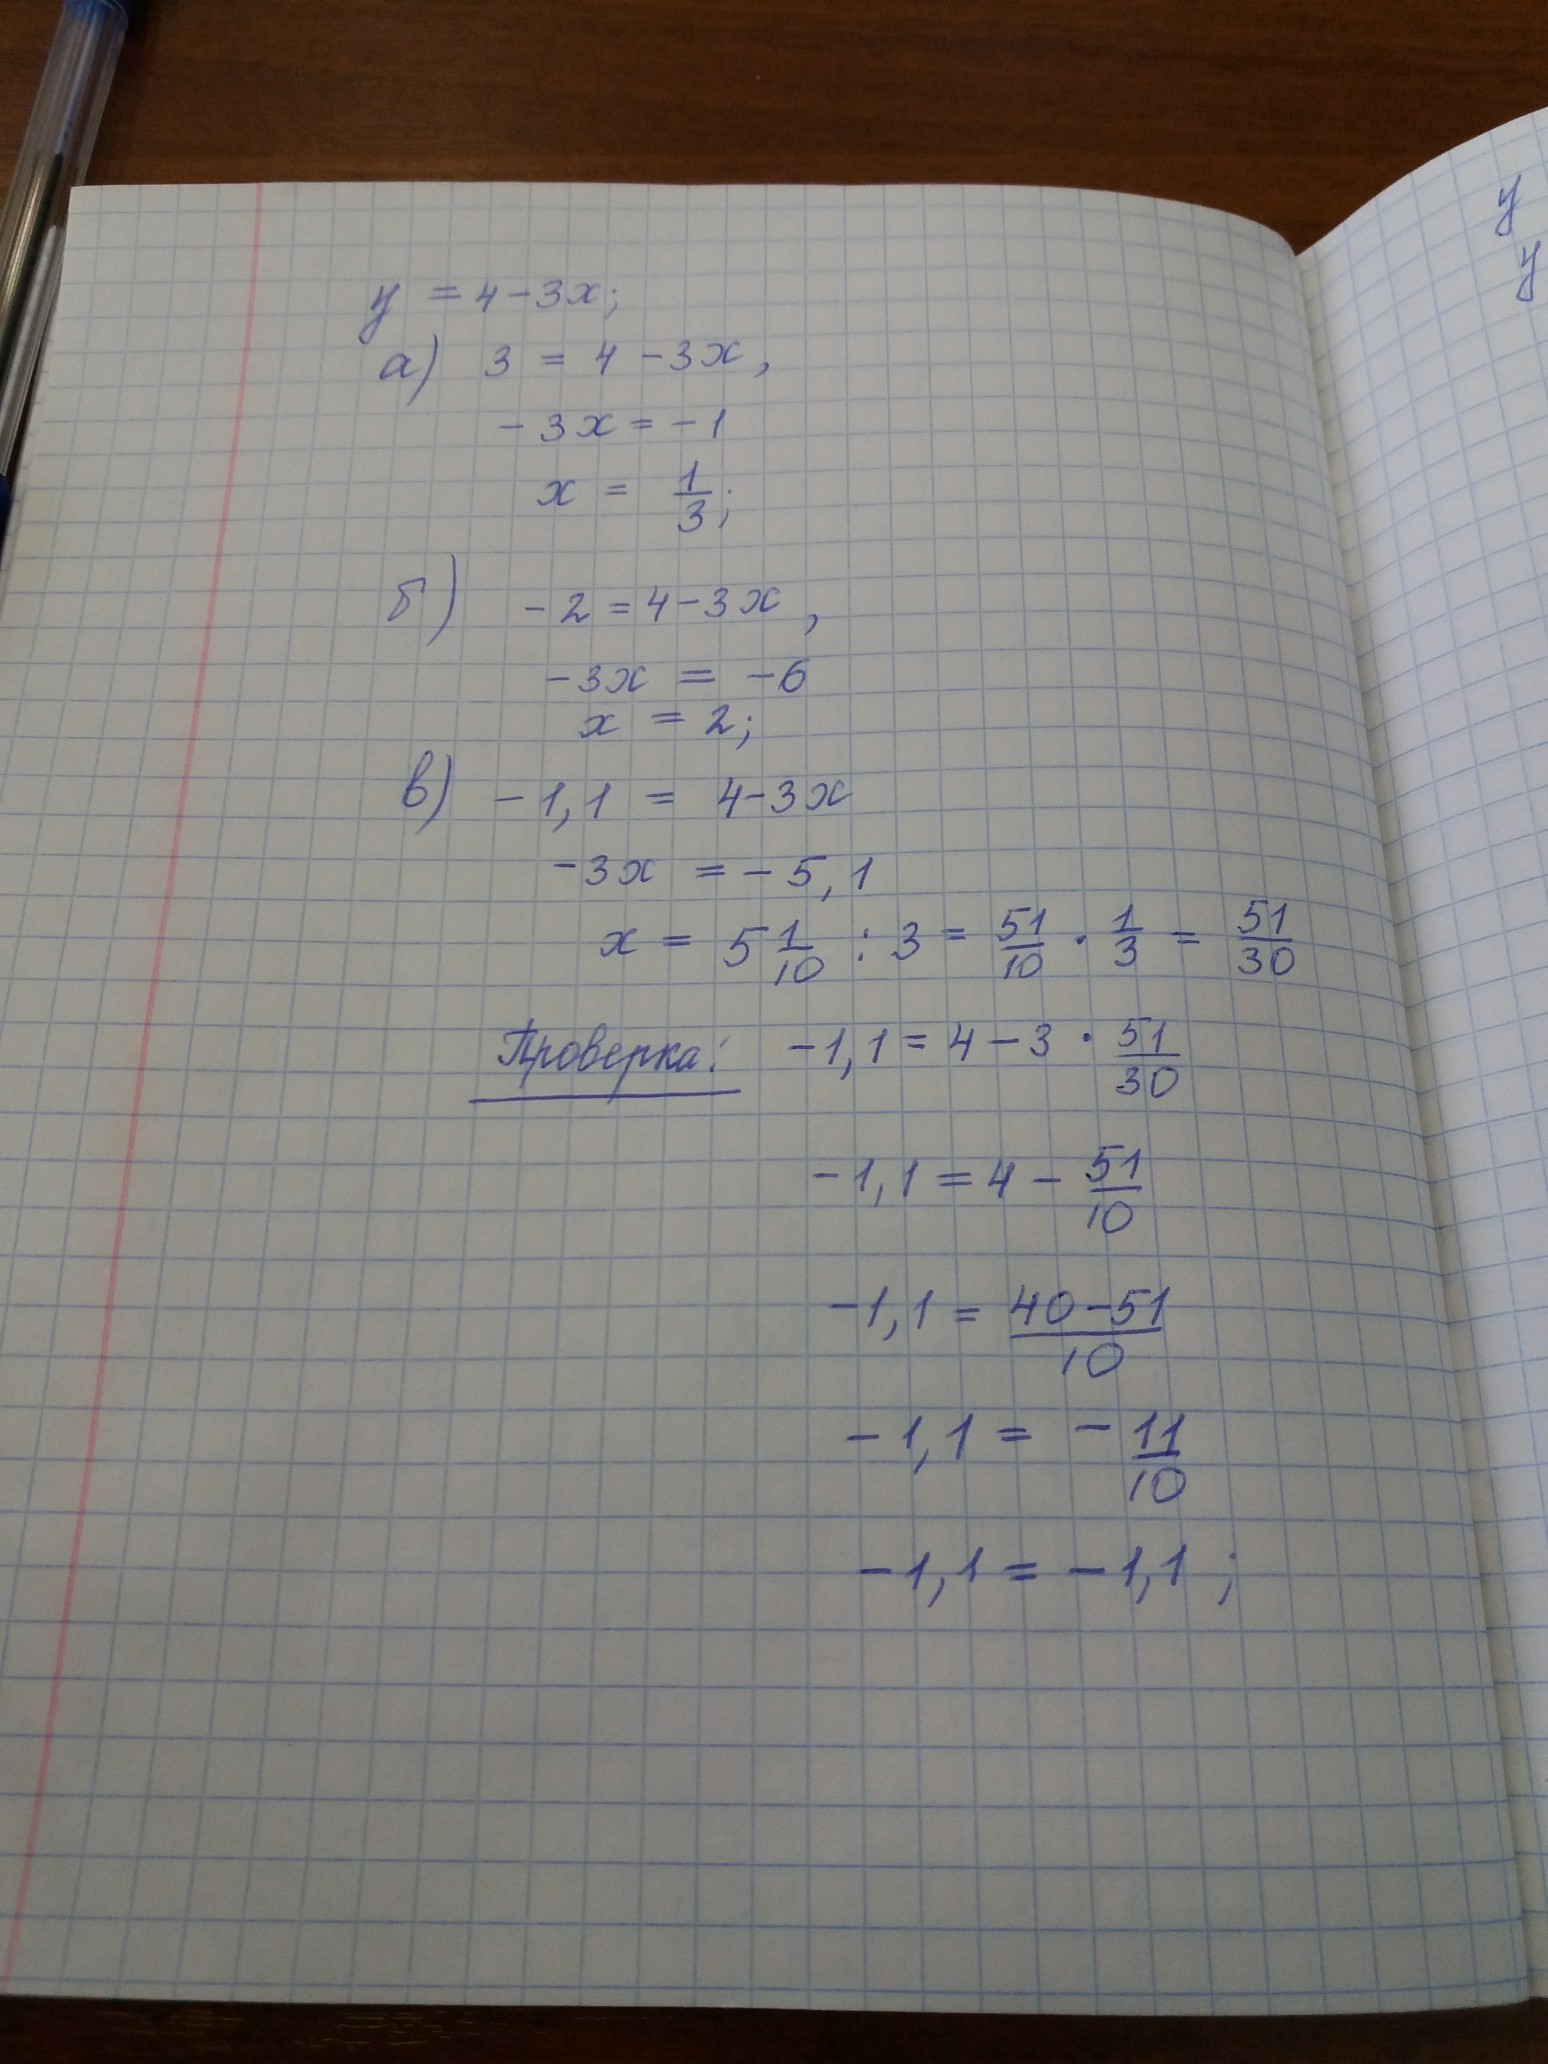 y = 4 - 3x;
а) 3 = 4 - 3x,
- 3x = - 1
x = 1/3;
б) - 2 = 4 - 3x,
- 3x = - 6
x = 2;
в) - 1,1 = 4 - 3x
- 3x = - 5,1
x = 5 1/10 : 3 = 51/10 · 1/3 = 51/30
Проверка: - 1,1 = 4 - 3 · 51/30
- 1,1 = 4 - 51/10
- 1,1 = 40 - 51/10
- 1,1 = - 11/10
- 1,1 = - 1,1 ;
y
y